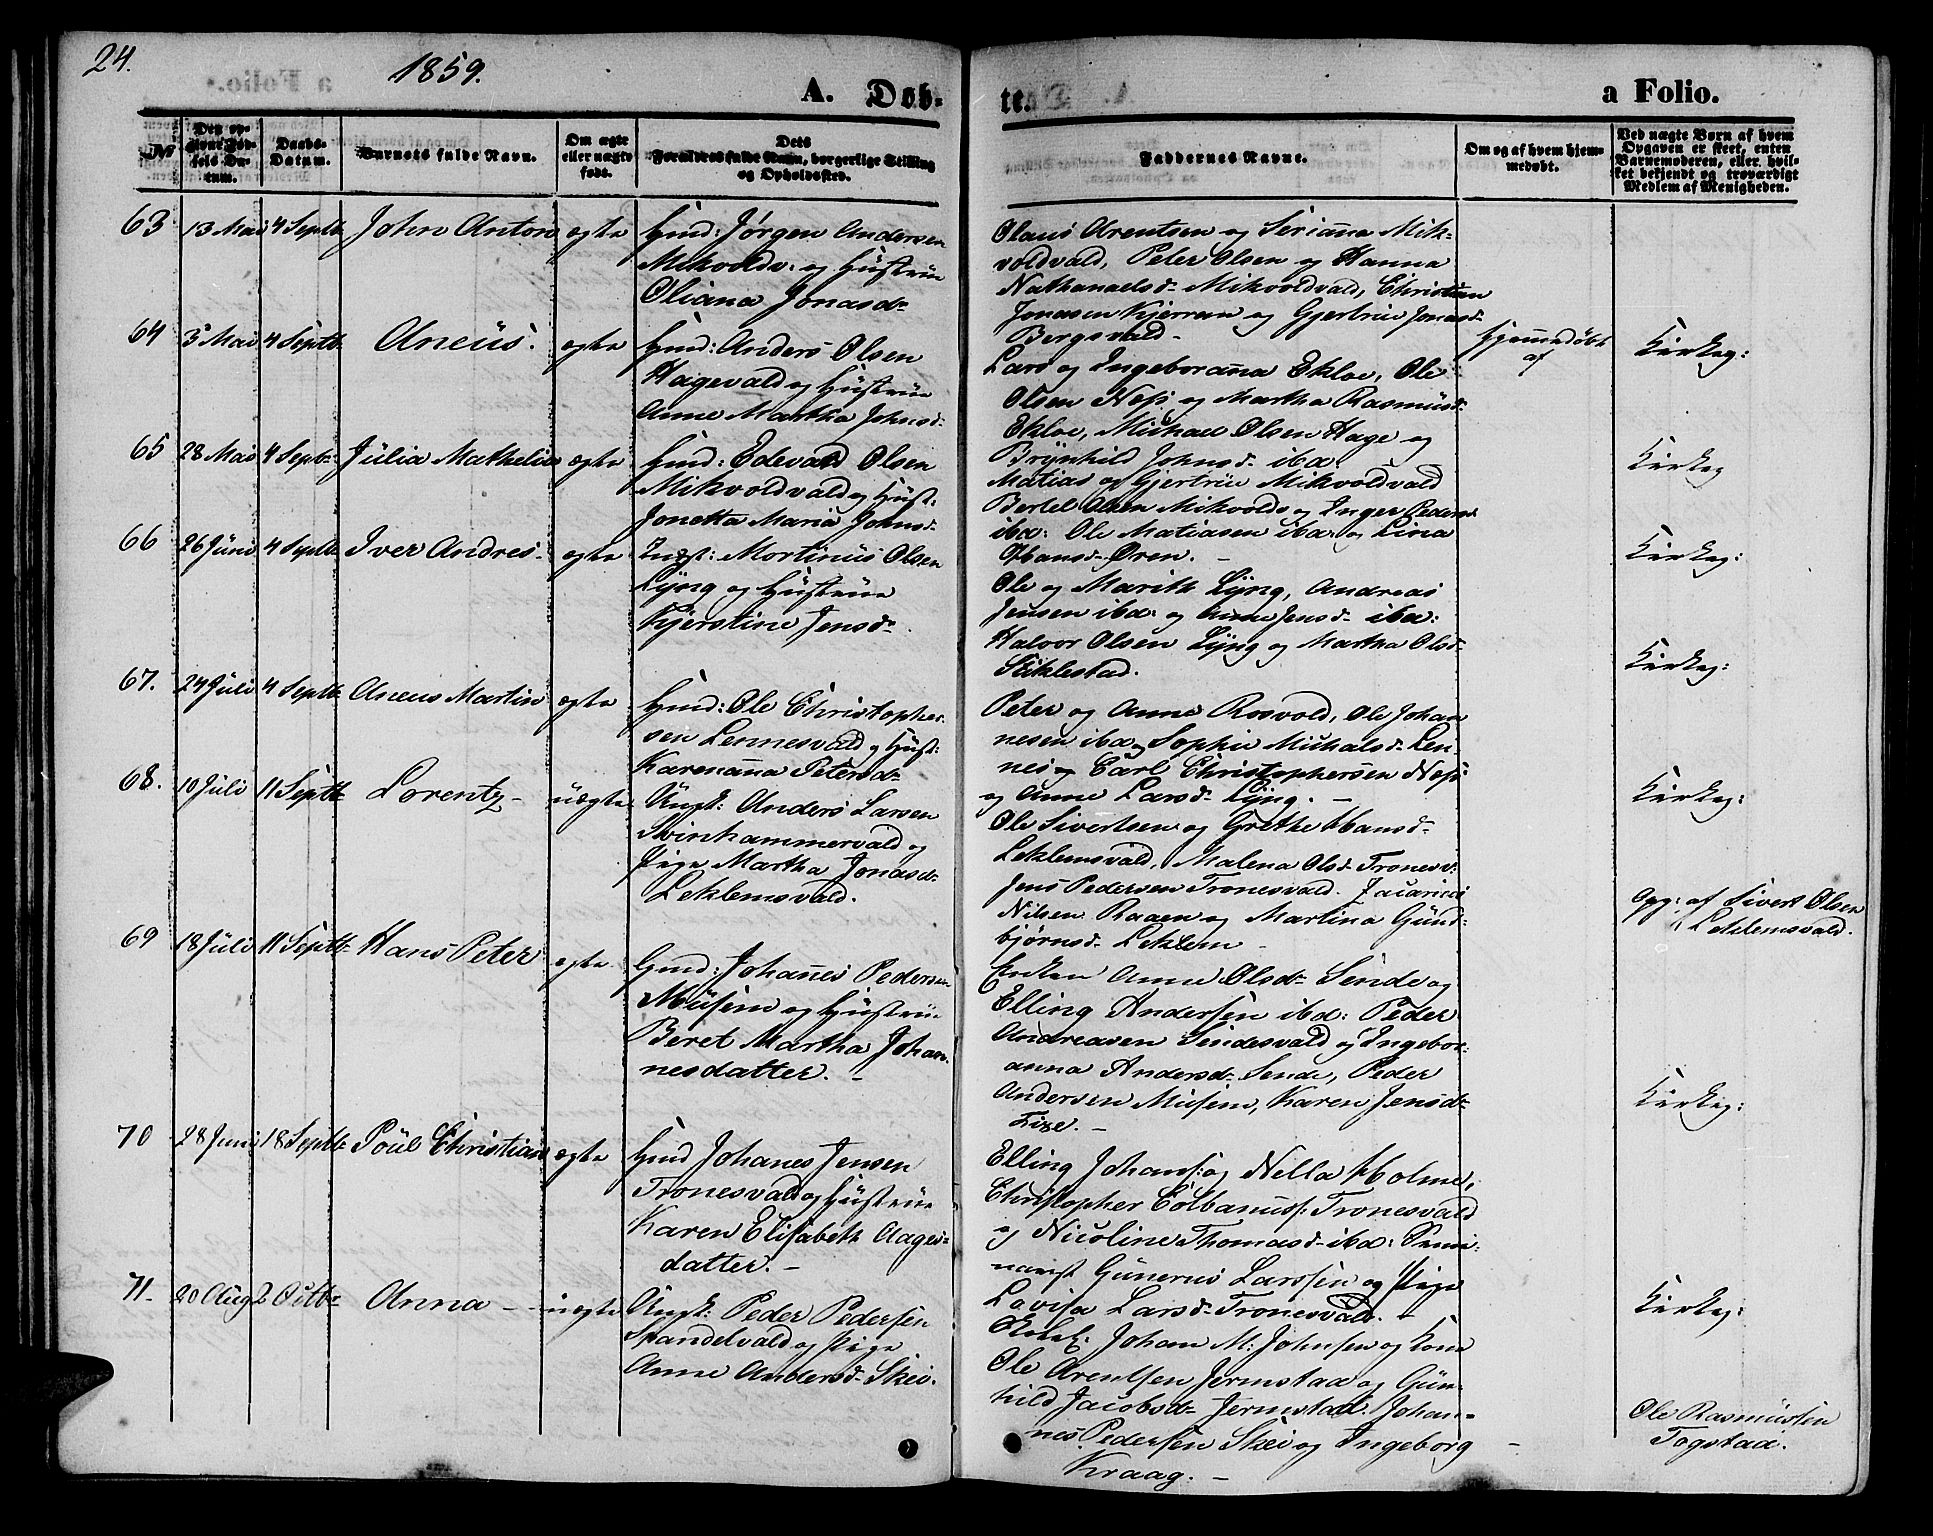 24.
1859.
A. Døb-
te.
a Folio.
No
Den opgivne Fødsels Datum.
Daabs-Datum.
Barnets fulde Navn.
Om ægte eller uægte født.
Dets Forældres fulde Navn, borgerlige Stilling og Opholdssted.
Faddernes Navne.
Om og af hvem hjemmedøbt.
Ved uægte Børn af hvem Opgaven er skeet, enten Barnemoderen, eller hvilket bekjendt og troværdigt Medlem af Menigheden.
63 13 Mai 4 Septb John Anton ægte Gmd: Jørgen Andersen
Mikvoldv: og Hustrue
Oliana Jonasd
Olaus Arentsen og Seriana Mik-
voldvald, Peter Olsen og Hanna
Nathanaelsd Mikvoldvald, Christian
Jonasen Kjerran og Gjertrue Jonasd
Bergsvald
64 3 Mai 4 Septb Aneüs. ægte Gmd: Anders Olsen
Hagevald og Hüstrüe
Anne Martha Johnsd
Lars og Ingeborana Ekloe, Ole
Olsen Næss og Martha Rasmüsd
Ekloe, Michael Olsen Hage og
Brynhild Johnsd iba:
Hjemmedøbt
af
Kirkeg:
65 28 Mai 4 Septb Jülia Mathelia ægte Gmd: Edevald Olsen
Mikvoldvald og Hust:
Jonetta Maria Johnsd
Matias og Gjertrüe Mikvoldvald
Bertel Olsen Mikvolds og Inger Pedersd
iba: Ole Matiasen iba: og Lina
Hansd Øren.
Kirkeg
66 26 Jüni 4 Septb Iver Andres ægte Indst: Mortinüs Olsen
Lyng og Hüstrüe
Kjerstine Jensd
Ole og Marith Lÿng, Andreas
Jensen iba: og Anne Jensd iba:
Halvor Olsen Lÿng og Martha Olsd
Stiklestad.
Kirkeg:
67. 24 Jüli 4 Septb Aneus Martin ægte Gmd: Ole Christopher-
sen Lennesvald og Hust:
Karenanna Petersd
Peter og Anne Rosvold, Ole Johan
nesen iba og Sophie Michalsd Len-
nes og Carl Christophersen Næss
og Anne Larsd Lÿng.
Kirkeg:
68. 10 Jüli 11 Septb Lorentz uægte Ungk: Anders Larsen
Svinhammervald og
Pige Martha Jonasd
Leklemsvald.
Ole Sivertsen og Grethe Hansd
Leklemsvald, Malena Olsd Tronesv:
Jens Pedersen Tronesvald. Zacarias
Nilsen Raaen og Martina Gund-
bjørnsd Leklem
Kirkeg:
69 18 Jüli 11 Septb Hans Peter ægte Gmd: Johanes Pedersen
Müsem og Hüstrüe
Beret Martha Johan-
nesdatter.
Enken Anne Olsd Sende og
Elling Andersen iba: Peder
Andreasen Sendesvald og Ingebor-
anna Andersd Sende, Peder
Andersen Musem, Karen Jensd
Opg: af Sivert Olsen
Leklemsvald.
70 28 Juni 18 Septb Poül Christian ægte Gmd Johanes Jensen
Tronesvald og Hüstrüe
Karen Elisabeth Aages-
datter.
Elling Johans: og Nella Holme,
Christopher Colbanuss: Tronesvald
og Nicoline Thomasd iba: Semi-
narist Günerus Larssen og Pige
Lovisa Larsd Tronesvald.
Kirkeg:
71. 20 Aug 2 Octb Anna uægte Ungk: Peder Pedersen
Skandelvald og Pige
Anne Andersd Skei.
Johan M. Johnsen og Kone
Ole Arentsen Jermstad og Gün-
hild Jacobsd Jermstad. Johan-
nes Pedersen Skei og Ingeborg
Kraag.
Kirkeg:
Ole Rasmüssen
Togstad.